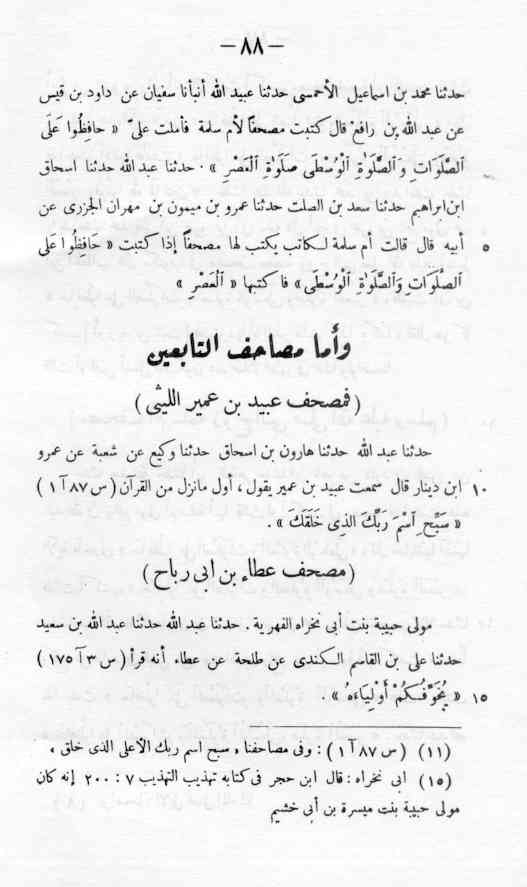 — ٨٨ —
حدثنا محمد بن اسماعيل الأحمسى حدثنا عبيد الله أنبأنا سفيان عن داود بن قيس
عن عبد الله بن رافع قال كتبت مصحفاً لأم سلمة فأملت علىّ « حافِظُوا عَلَى
اَلصَّلَوَات وَاَلصَّلَوٰةِ اَلْوُسْطَى صَلَوٰةِ اَلْعَصْرِ » . حدثنا عبد الله حدثنا اسحاق
ابن ابراهيم حدثنا سعد بن الصلت حدثنا عمرو بن ميمون بن مهران الجزرى عن
٥ أبيه قال قالت أم سلمة لكاتب يكتب لها مصحفاً إذا كتبت « حَافِظُوا عَلى
اَلصَّلَوَاتِ وَاَلصَّلَوٰةِ اَلْوُسْطَى » فاكتبها « اَلْعَصْرِ »
وأما مصاحف التابعين
( فمصحف عبيد بن عمير الليثى )
حدثنا عبد الله حدثنا هارون بن اسحاق حدثنا وكيع عن شعبة عن عمرو
١٠ ابن دينار قال سمعت عبيد بن عمير يقول ، أول مانزل من القرآن ( س ٨٧ آ ١ )
« سَبِّحِ اَسْمَ رَبِّكَ الَّذِى خَلَقَكَ » .
( مصحف عطاء بن ابى رباح )
مولى حبيبة بنت أبى نخراه الفهرية . حدثنا عبد الله حدثنا عبد الله بن سعيد
حدثنا على بن القاسم الكندى عن طلحة عن عطاء أنه قرأ ( س ٣ آ ١٧٥ )
١٥ « يُخَوِّفُكُمْ أَوْلِيَاءَهُ » .
( ١١ ) ( س ٨٧ آ ١ ) : وفى مصاحفنا ، سبح اسم ربك الأعلى الذى خلق ،
( ١٥ ) ابى نخراه : قال ابن حجر فى كتابه تهذيب التهذيب ٧ : ٢٠٠ إنه كان
مولى حبيبة بنت ميسرة بن أبى خشيم